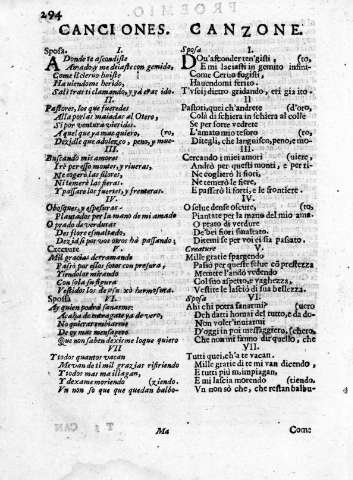 294
CANCIONES.
Sposa. I.
ADonde te ascondiste
Amado, y me dexaste con gemido,
Como el ciervo huiste
Haviendome herido,
Salí tras ti clamando, y ya eras ido.
II.
Pastores, los que fueredes
Allà por las majadas al Otero,
Si por ventura vieredes
Aquel que yo mas quiero, (ro,
Dezidle que adolezco, peno, y mue-
III.
Buscando mis amores
Irè por esso montes, y riveras,
Ne cogerè las flores,
Ni temerè las fieras.
Y passarè los fuertes, y fronteras.
IV.
O bosques, y espessuras
Plantados por la mano de mi amado
O prado de verduras
De flores esmaltado,
Dezid si por vos otros hà passando;
Creature V.
Mil gracias derramando
Passò por estos sotos con presura,
Y iendolos mirando
Con sola su figura
Vestidos los dexò de hermosura.
Sposa VI.
Ay quien podrà sanarme!
Acaba de entregarte ya de vero,
No quieras embiarme
De oy mas mensagero
Que non saben dezirme lo que quiero
VII
Y todos quantos vacan
Me van de ti mil grazias refiriendo
Y todos mas me llagan,
Y dexame moriendo (ziendo.
Un non so que que quedan balbo-
Ma
CANZONE.
Sposa I.
DOu' asconder ten'gisti, (to,
E mi lasciasti in gemito infini-
Come Cervo fugisti,
Havendomi ferito.
T'uscij dietro gridando, eri già ito.
II
Pastori, quei ch'andrete (d'oro,
Colà di schiera in schiera al colle
Se per sorte vedrete
L'amato mio tesoro (to,
Ditegli, che languisco, peno, e mo-
III.
Cercando i miei amori (uiere,
Andrò per questi monti, e per ri-
Ne coglierò li fiori,
Ne temerò le fiere,
E passerò li forti, e le frontiere.
IV.
O selue dense oscure, (to,
Piantate per la mano del mio ama-
O prato di verdure
De bei fiori smaltato.
Ditemi se per voi ei sia passato.
Creature V.
Mille gratie spargendo
Passò per queste selue cõ prestezza
Mentre l'andò vedendo
Col suo aspetto, e vaghezza,
Vestite le lasciò di sua bellezza.
Sposa VI.
Ahi chi potrà sanarmi? (uero
Deh datti homai del tutto, e da do-
Non voler'inuiarmi
D'oggi in poi messaggiero, (chero,
Che non mi sanno dir quello, che
VII.
Tutti quei, ch'à te vacan.
Mille gratie di te mi van dicendo,
E tutti più m'impiagan,
E mi lascia morendo (tiendo.
Vn non sò che, che restan balbu-
Come